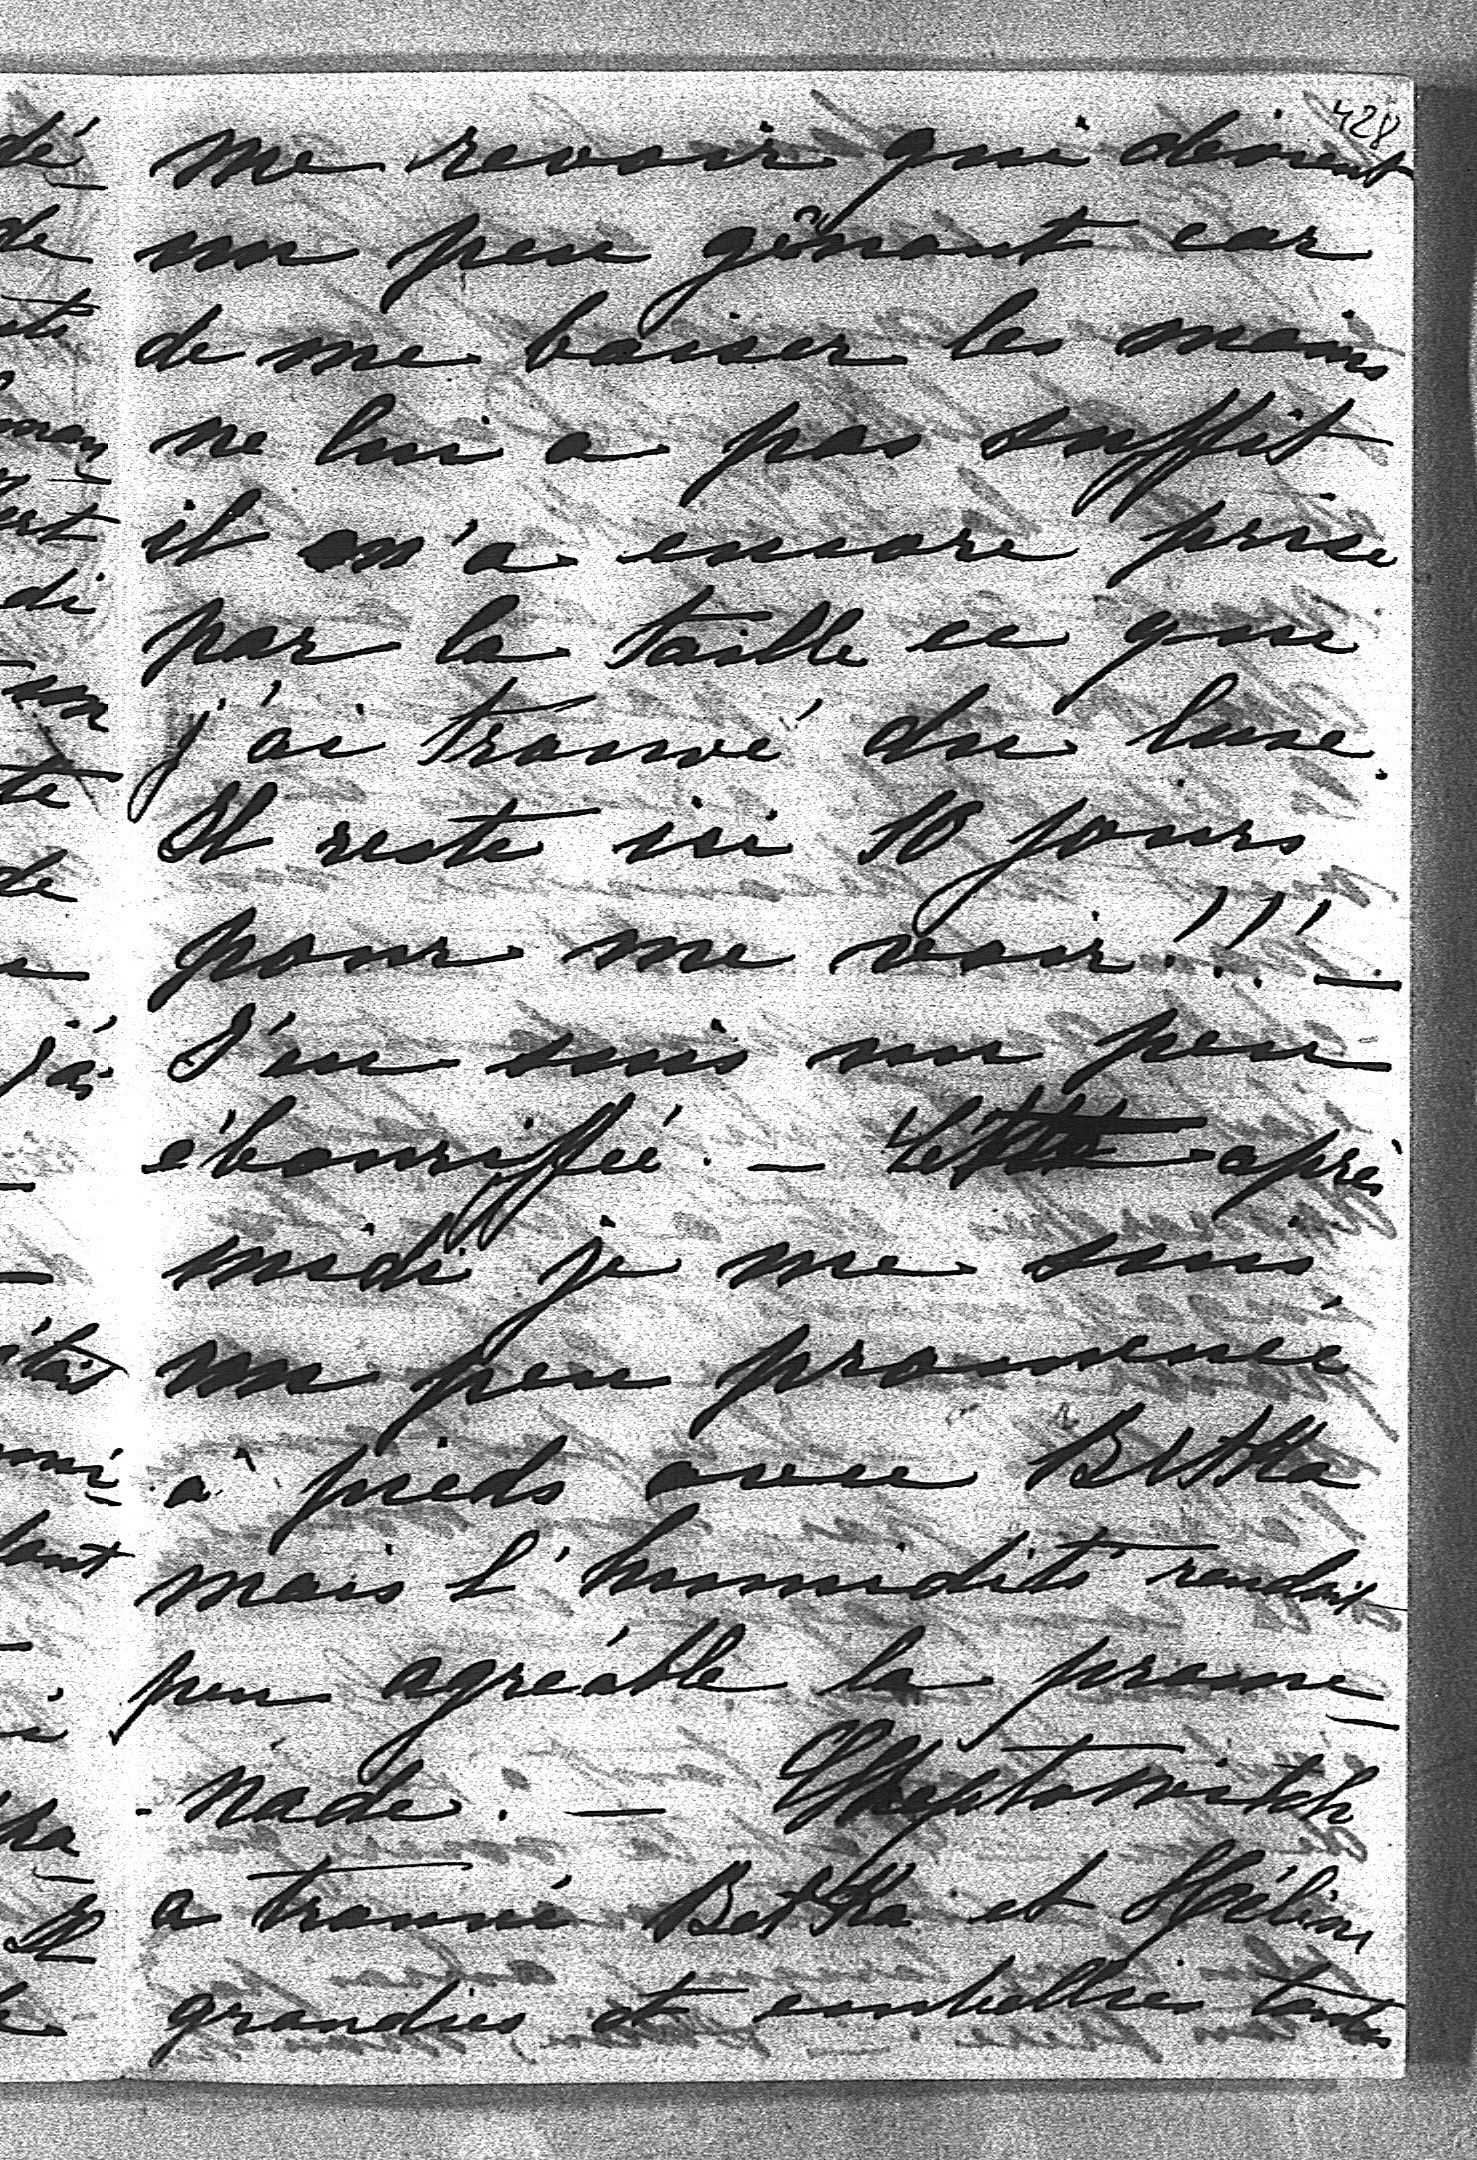 428
me revoir qui devient
un peu gênant car
de me baiser les mains
ne lui a pas suffit
il m'a encore prise
par la taille ce que
j'ai trouvé du luxe.
Il reste ici 10 jours
pour me voir!!! —
J'en suis un peu
ébouriffée. — après
midi je me suis
un peu promenée
à pieds avec Betka
mais l'humidité rendait
peu agréable la prome-
nade. —
a trouvé Betka et Hélène
grandies et embellies toutes